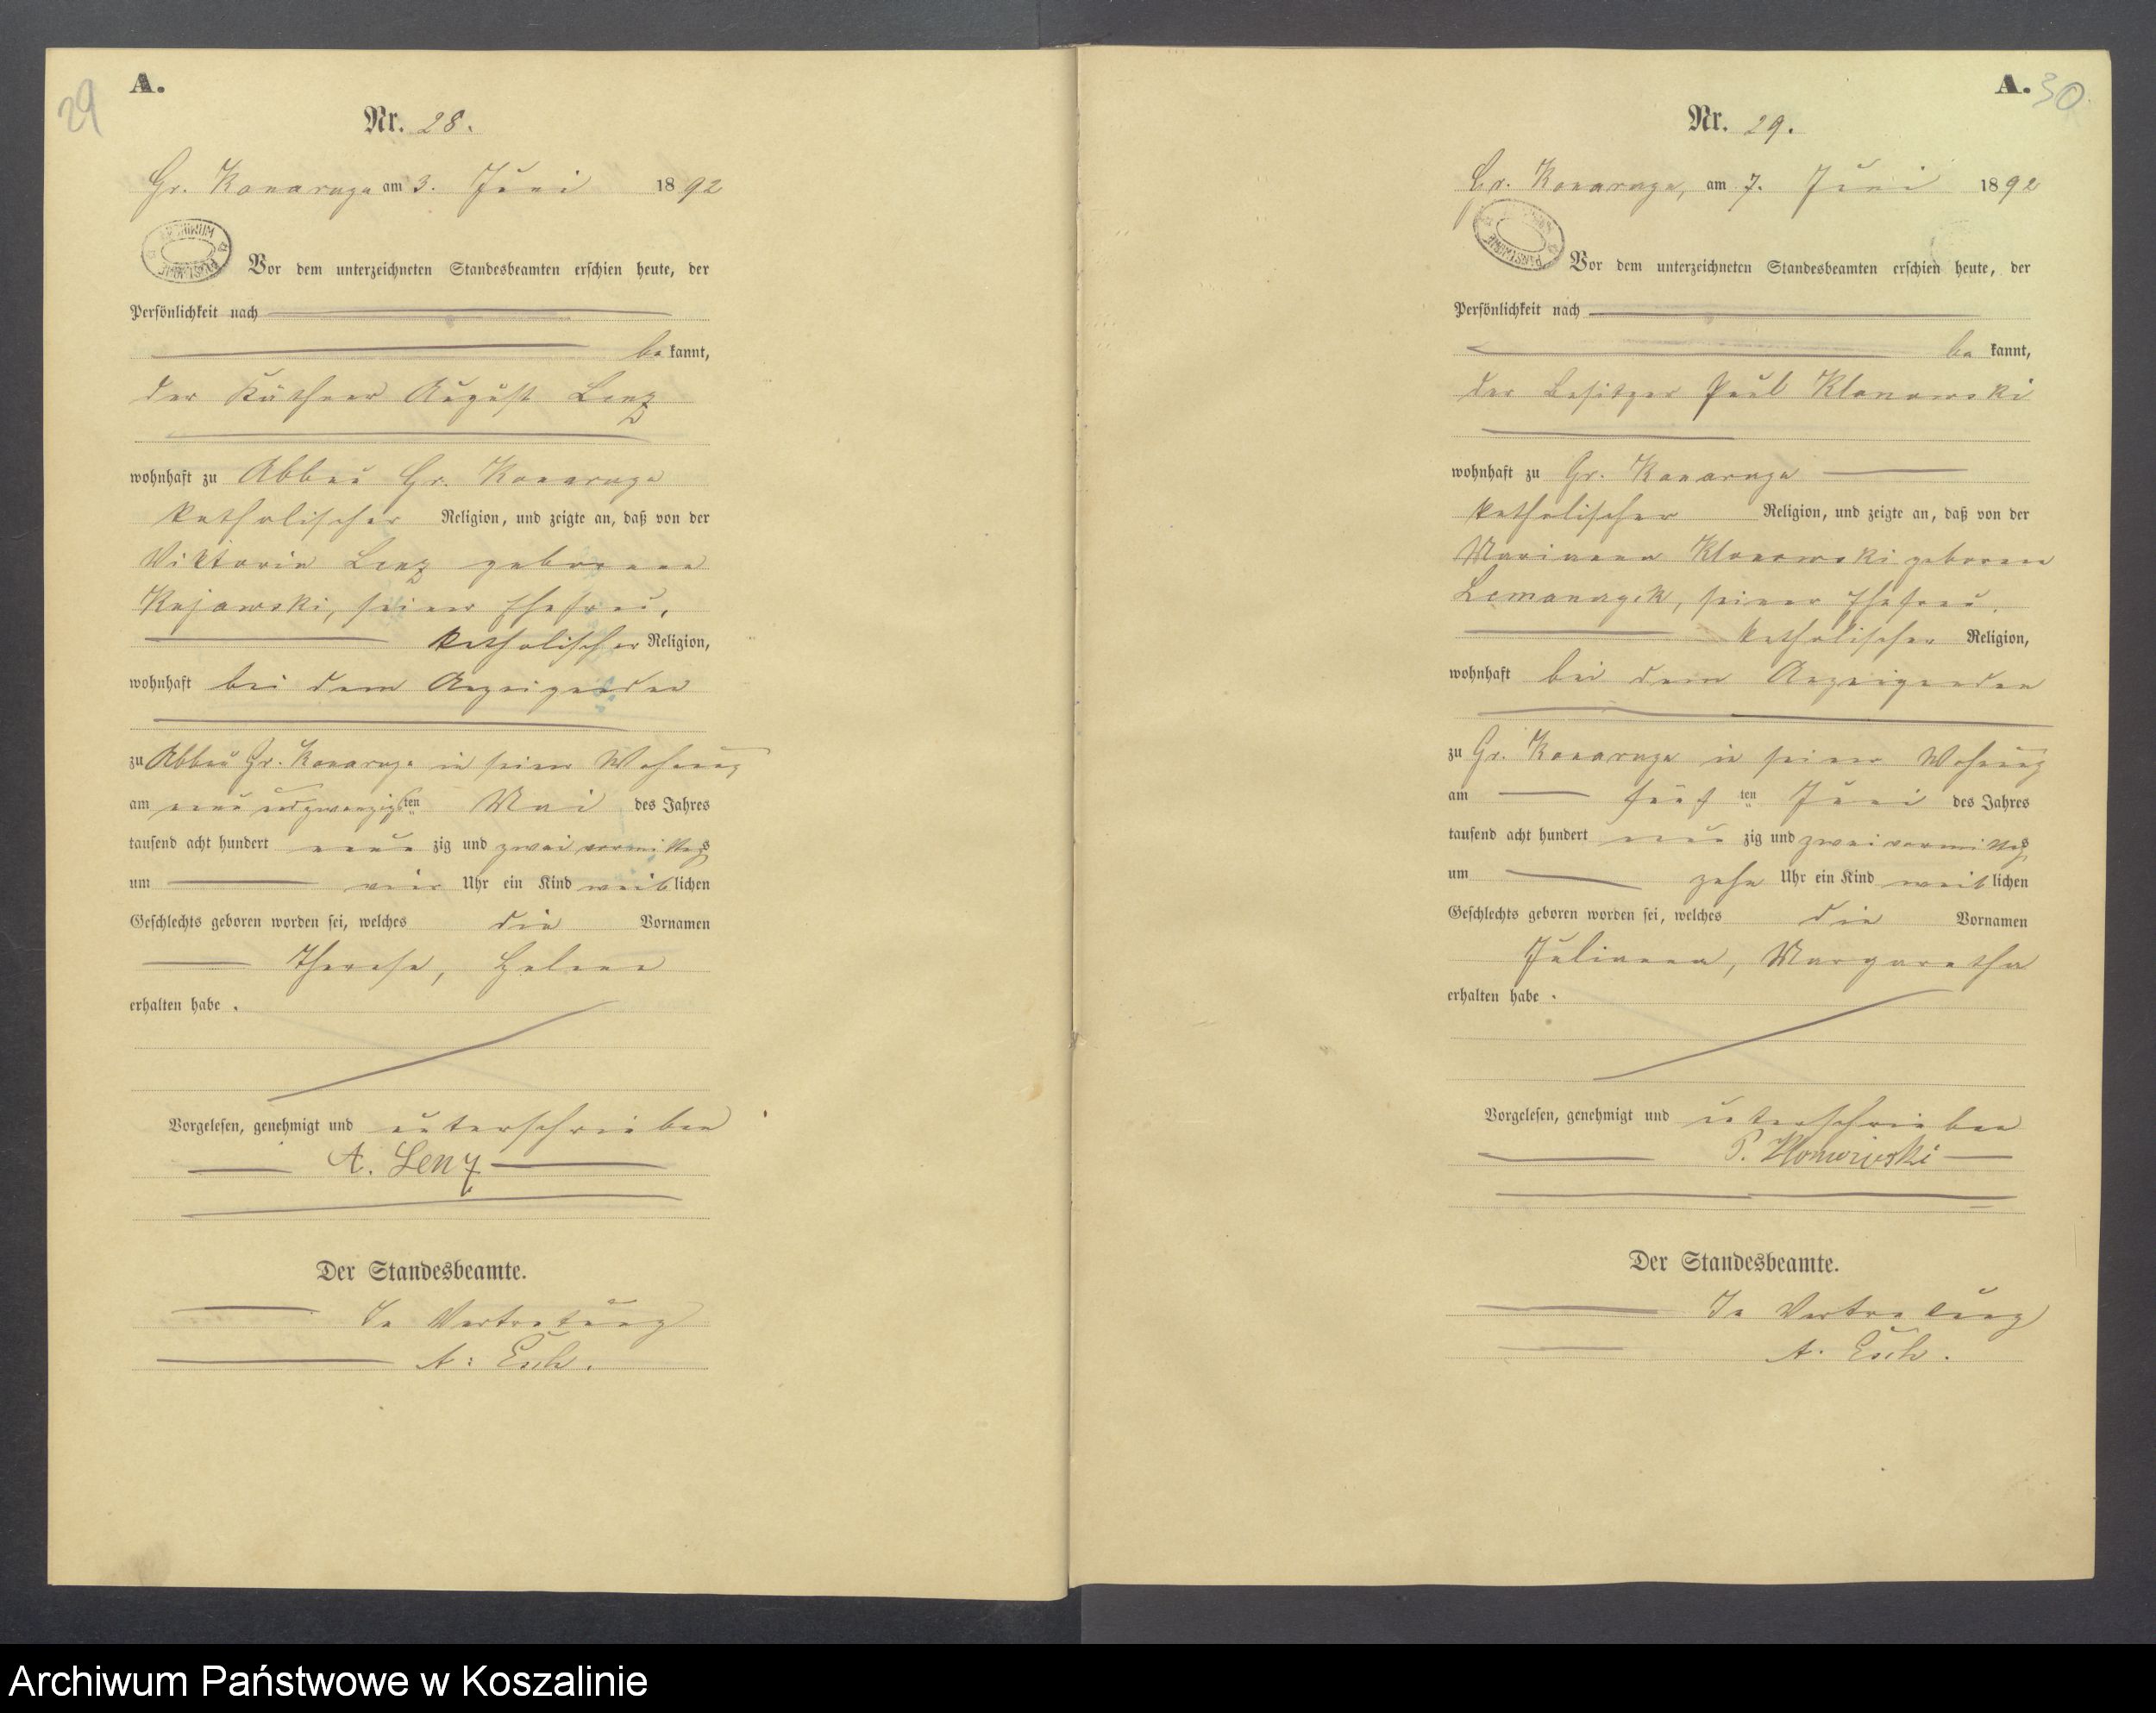 29
A.
Nr. 28.
Gr. Konarzyn am 3. Juni 1892
ARCHIWUM PAŃSTWOWE
Vor dem unterzeichneten Standesbeamten erschien heute, der
Persönlichkeit nach
be kannt,
der Käthner August Lenz
wohnhaft zu Abbau Gr. Konarzyn
katholischer Religion, und zeigte an, daß von der
Viktoria Lenz geborenen
Kujawski, seiner Ehefrau,
katholischer Religion,
wohnhaft bei dem Anzeigenden
zu Abbau Gr. Konarzyn in seiner Wohnung
am neun und zwanzigsten Mai des Jahres
tausend acht hundert neun zig und zwei vormittags
um vier Uhr ein Kind weiblichen
Geschlechts geboren worden sei, welches die Vornamen
Therese, Helene
erhalten habe .
Vorgelesen, genehmigt und unterschrieben
A. Lenz
Der Standesbeamte.
In Vertretung
A. Esch.
A. 30
Nr. 29.
Gr. Konarzyn, am 7. Juni 1892
ARCHIWUM PAŃSTWOWE
Vor dem unterzeichneten Standesbeamten erschien heute, der
Persönlichkeit nach
be kannt,
der Besitzer Paul Klonowski
wohnhaft zu Gr. Konarzyn
katholischer Religion, und zeigte an, daß von der
Marianna Klonowski geborene
seiner Ehefrau,
katholischer Religion,
wohnhaft bei dem Anzeigenden
zu Gr. Konarzyn in seiner Wohnung
am fünf ten Juni des Jahres
tausend acht hundert neun zig und zwei vormittags
um zehn Uhr ein Kind weiblichen
Geschlechts geboren worden sei, welches die Vornamen
Julianna, Margaretha
erhalten habe .
Vorgelesen, genehmigt und unterschrieben
P.
Der Standesbeamte.
In Vertretung
A. Esch.
Archiwum Państwowe w Koszalinie